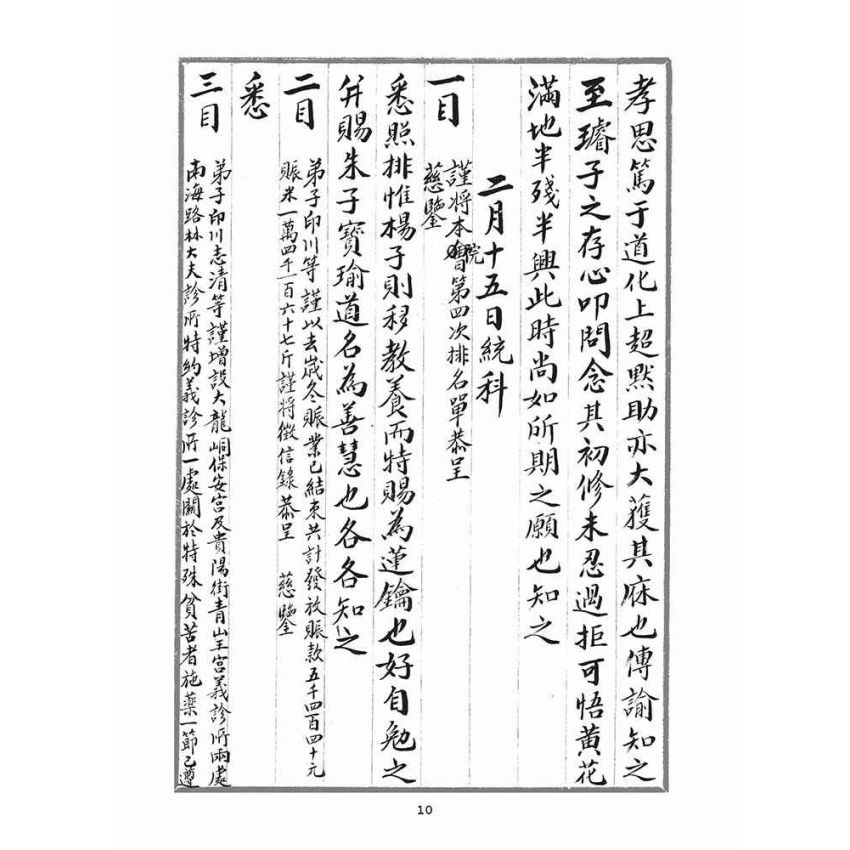 孝思篤于道化上超默助亦大獲其庥也傳諭知之
至璿子之存心叩問念其初修未忍過拒可悟黃花
滿地半殘半興此時尚如所期之願也知之
二月十五日統科
一目
謹將本院第四次排名單恭呈
慈鑒
悉照排惟楊子則移教養而特賜為蓮鑰也好自勉之
并賜朱子寶瑜道名為善慧也各各知之
二目
弟子印川等謹以去歲冬賑業已結束共計發放賑款五千四百四十元
賑米一萬四千一百六十七斤謹將徵信錄恭呈 慈鑒
悉
三目
弟子印川志清等謹增設大龍峒保安宮及貴陽街青山王宮義診所兩處
南海路林大夫診所特約義診所一處關於特殊貧苦者施藥一節已遵
10